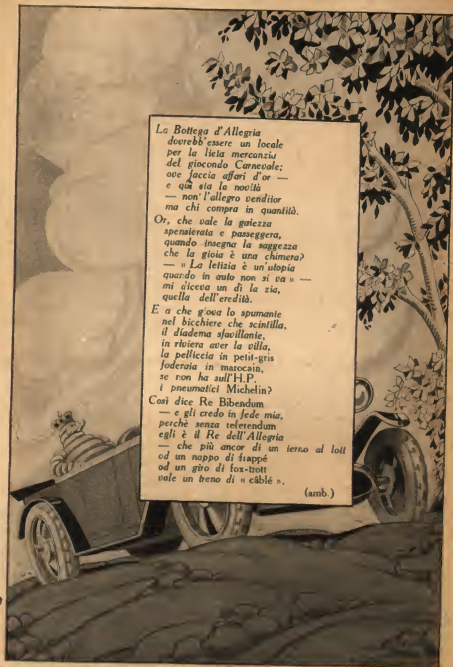 La Bottega d'Allegria
dovrebb'essere un locale
per la lieta mercanzia
del giocondo Carnevale;
ove faccia affari d'or —
e qui sta la novità
— non l'allegro venditor
ma chi compra in quantità.
Or, che vale la gaiezza
spensierata e passeggera,
quando insegna la saggezza
che la gioia è una chimera?
— « La letizia è un'utopia
quando in auto non si va » —
mi diceva un dì la zia,
quella dell'eredità.
E a che giova lo spumante
nel bicchiere che scintilla,
il diadema sfavillante,
in riviera aver la villa,
la pelliccia in petit-gris
foderata in marocain,
se non ha sull'H.P.
i pneumatici Michelin?
Così dice Re Bibendum
— e gli credo in fede mia,
perchè senza referendum
egli è il Re dell'Allegria
— che più ancor di un terno al lott
od un nappo di frappé
od un giro di fox-trott
vale un treno di « câblé ».
(amb.)